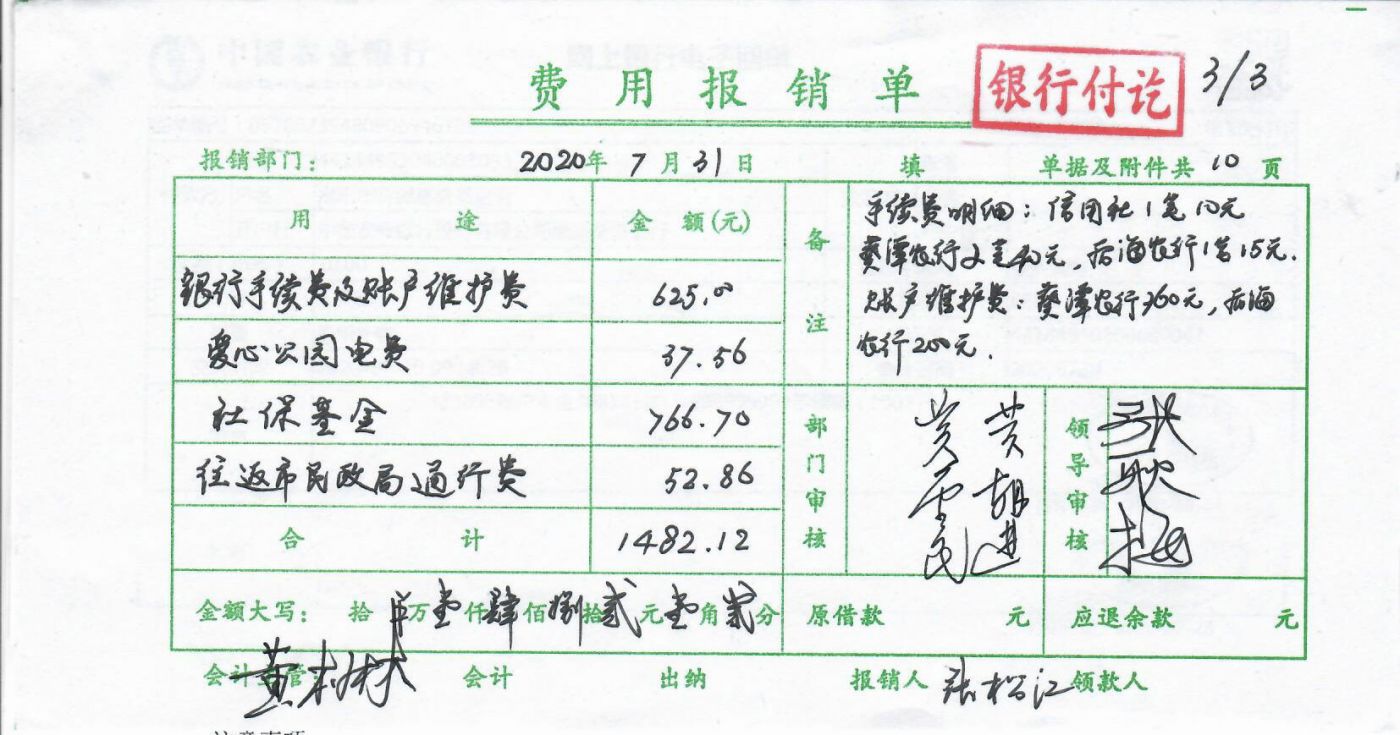 费用报销单 银行付讫 3/3
报销部门： 2020年 7 月 31 日 填 单据及附件共 10 页
用 途 金 额(元) 备注
手续费明细：信用社1笔10元
葵潭农行2笔40元，后海农行1笔15元.
账户维护费：葵潭农行360元，后海
农行200元.
银行手续费及账户维护费 625.00
爱心公园电费 37.56
社保基金 766.70
往返市民政局通行费 52.86
合 计 1482.12
部门审核 黄 黄胡进 领导审核 张
金额大写： 拾 万壹仟肆佰捌拾贰元壹角贰分 原借款 元 应退余款 元
会计主管： 黄 林 会计 出纳 报销人 张松江 领款人
注意事项